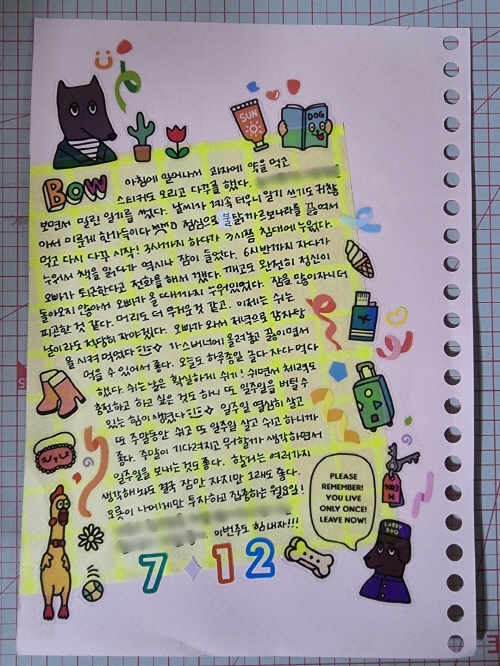 SUN
DOG
BOW
아침에 일어나서 과자에 약을 먹고
스티커도 오리고 다꾸를 했다.
보면서 밀린 일기를 썼다. 날씨가 계속 더우니 일기 쓰기도 귀찮
아서 미룬게 한가득이다 점심으로 닭까르보나라를 끓여서
먹고 다시 다꾸 시작! 3시까지 하다가 3시쯤 침대에 누웠다.
누워서 책을 읽다가 역시나 잠이 들었다. 6시반까지 자다가
오빠가 퇴근한다고 전화를 해서 깼다. 깨고도 완전히 정신이
돌아오지 않아서 오빠가 올 때까지 누워있었다. 잠을 많이자니 더
피곤한 것 같다. 머리도 더 무거운 것 같고. 이제는 쉬는
날이라도 적당히 자야겠다. 오빠가 와서 저녁으로 감자탕
을 시켜 먹었다 가스버너에 올려놓고 끓이면서
먹을 수 있어서 좋다. 오늘도 하루종일 놀다 자다 먹다
했다. 쉬는 날은 확실하게 쉬기! 쉬면서 체력도
충전하고 하고 싶은 것도 하니 또 일주일을 버틸 수
있는 힘이 생겼다 일주일 열심히 살고
또 주말동안 쉬고 또 일주일 살고 쉬고 하니까
좋다. 주말이 기다려지고 뭐할까 생각하면서
일주일을 보내는 것도 좋다. 할거는 여러가지
생각해봐도 결국 잠만 자지만 그래도 좋다.
오롯이 나에게만 투자하고 집중하는 일요일!
이번주도 힘내자!!!
PLEASE
REMEMBER!
YOU LIVE
ONLY ONCE!
LEAVE NOW!
LOBBY
DOG
7 12